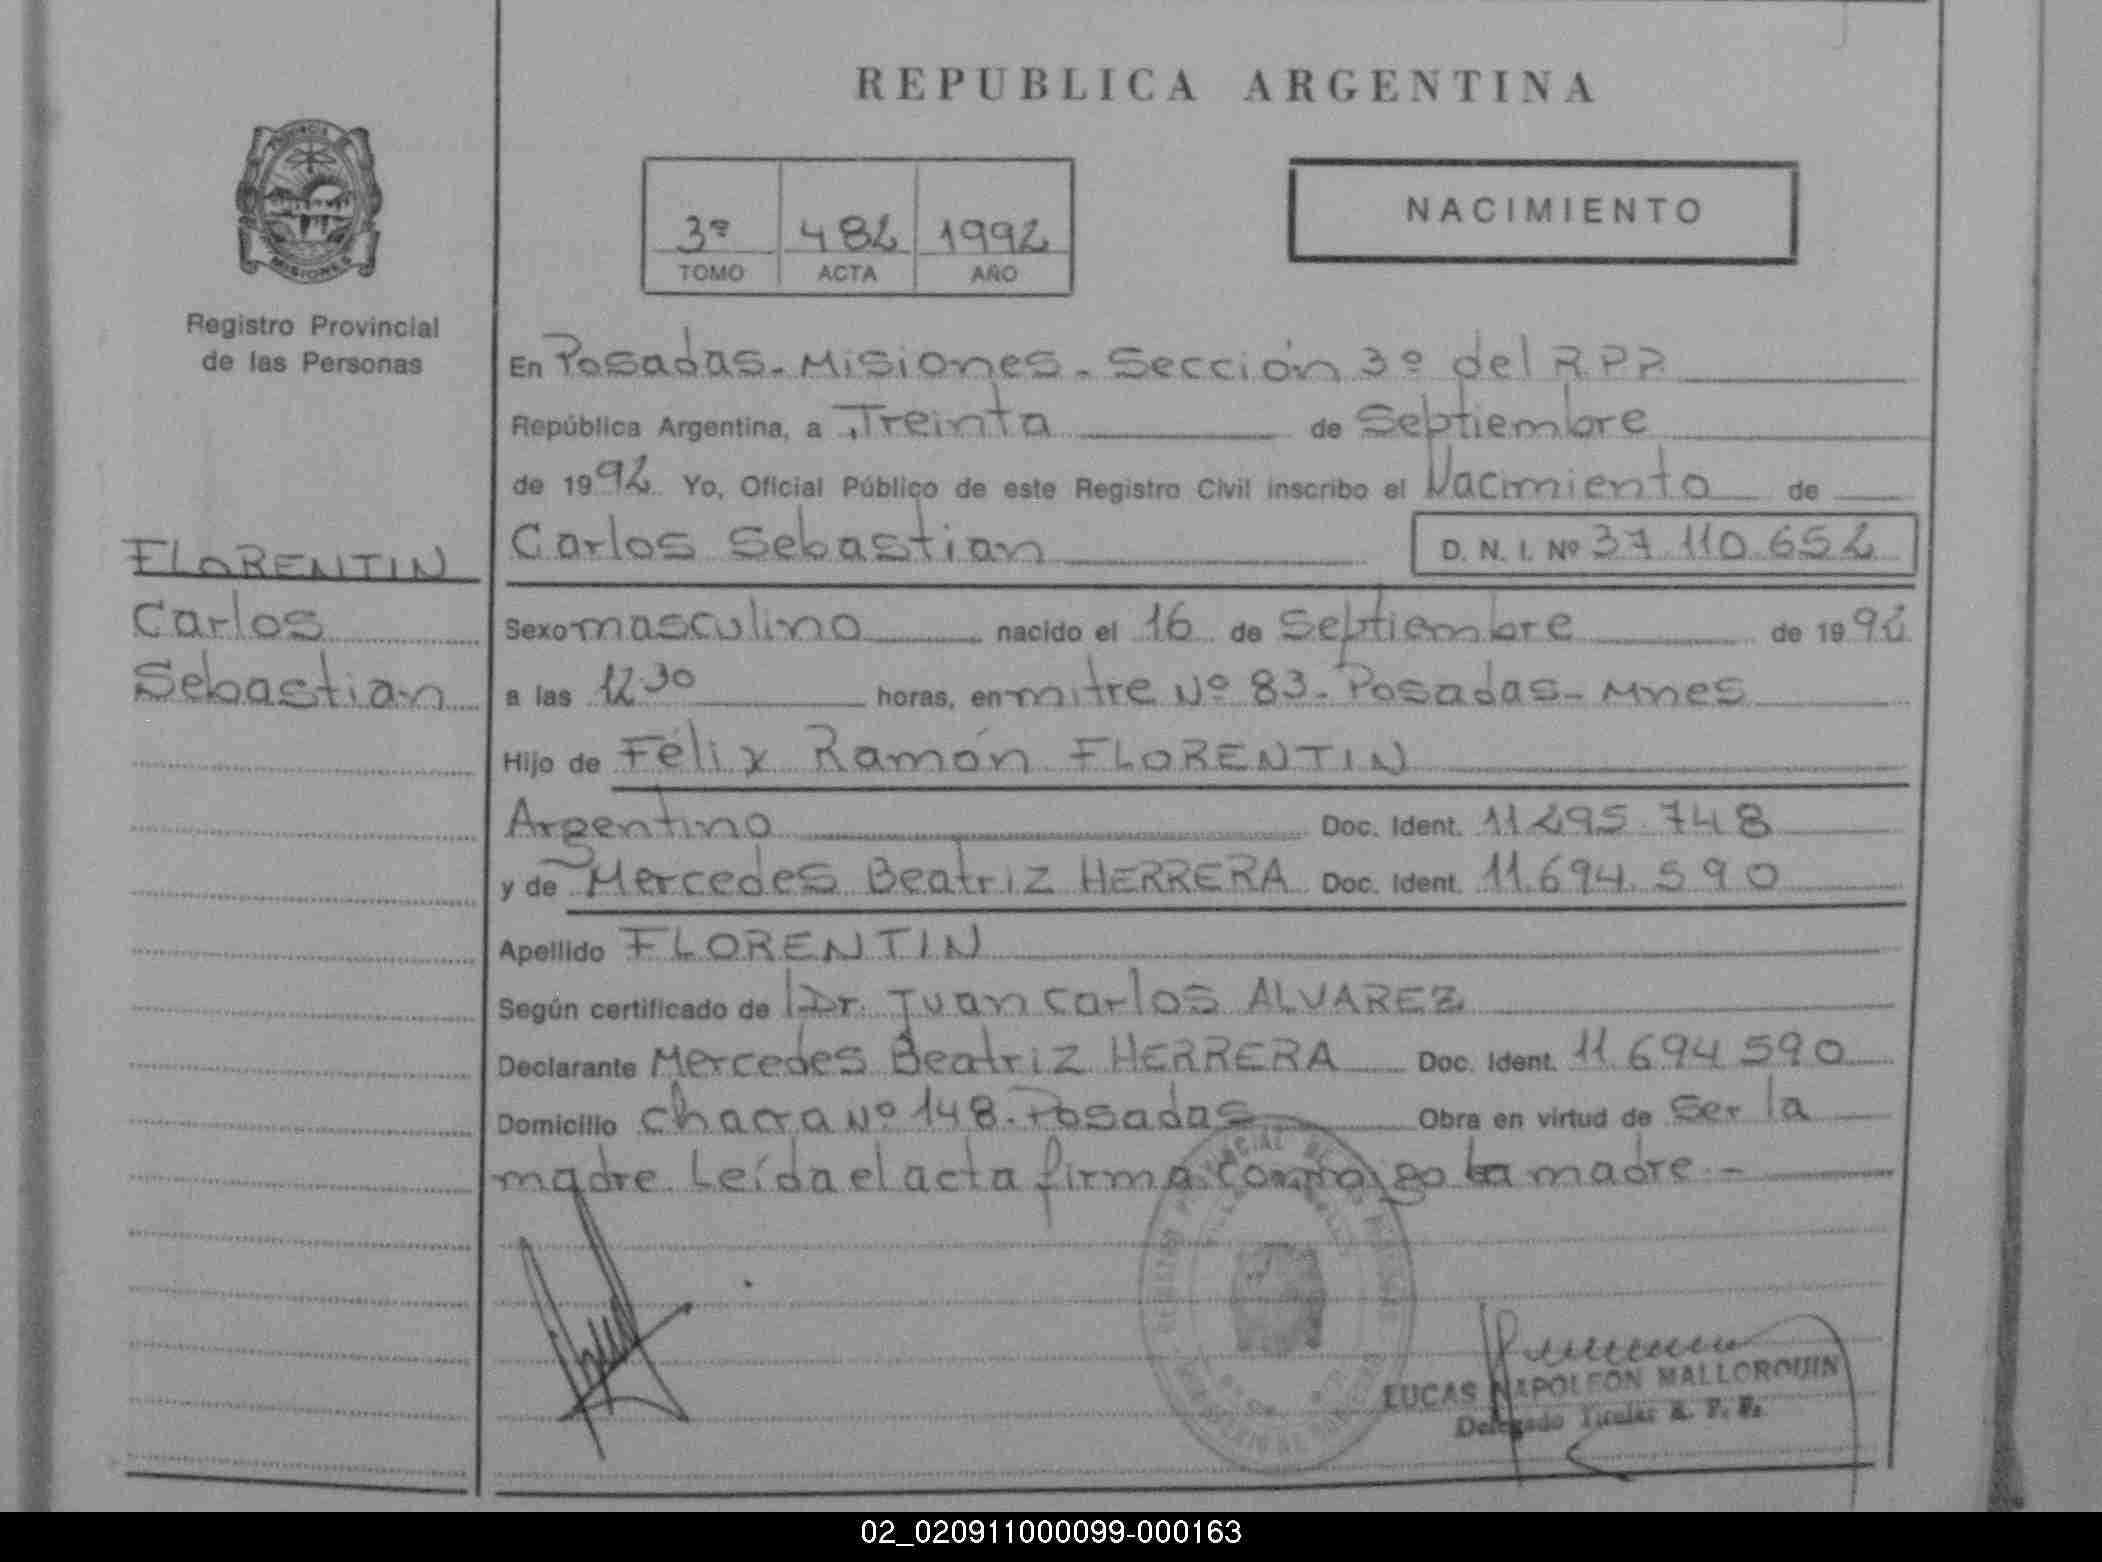 REPUBLICA ARGENTINA
PROVINCIA
MISIONES
Registro Provincial
de las Personas
3º 482 1992
TOMO ACTA AÑO
NACIMIENTO
En Posadas-Misiones-Sección 3º del RPP
República Argentina, a Treinta de Septiembre
de 1992 Yo, Oficial Público de este Registro Civil inscribo el Nacimiento de
Carlos Sebastian D. N. I. Nº 37 110.652
FLORENTIN
Carlos
Sebastian
Sexo masculino nacido el 16 de Septiembre de 1992
a las 12 30 horas, en mitre Nº 83-Posadas-Mnes
Hijo de Félix Ramón FLORENTIN
Argentino Doc. Ident. 11295.748
y de Mercedes Beatriz HERRERA Doc. Ident. 11.694.590
Apellido FLORENTIN
Según certificado de Dr. Juan Carlos ALVAREZ
Declarante Mercedes Beatriz HERRERA Doc. Ident. 11 694 590
Domicilio chacra Nº 148-Posadas Obra en virtud de ser la
madre Leída el acta firma conmigo la madre-
LUCAS NAPOLEON MALLORQUIN
Delegado Titular R. P. P.
02_020911000099-000163